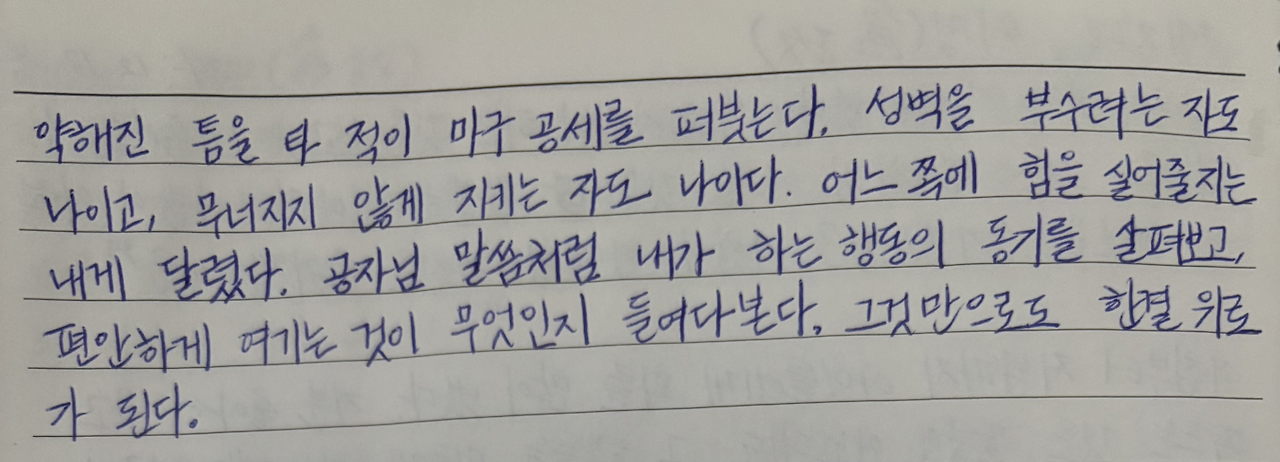 약해진 틈을 타 적이 마구 공세를 퍼붓는다. 성벽을 부수려는 자도
나이고, 무너지지 않게 지키는 자도 나이다. 어느 쪽에 힘을 실어줄지는
내게 달렸다. 공자님 말씀처럼 내가 하는 행동의 동기를 살펴보고,
편안하게 여기는 것이 무엇인지 들여다본다. 그것만으로도 한결 위로
가 된다.